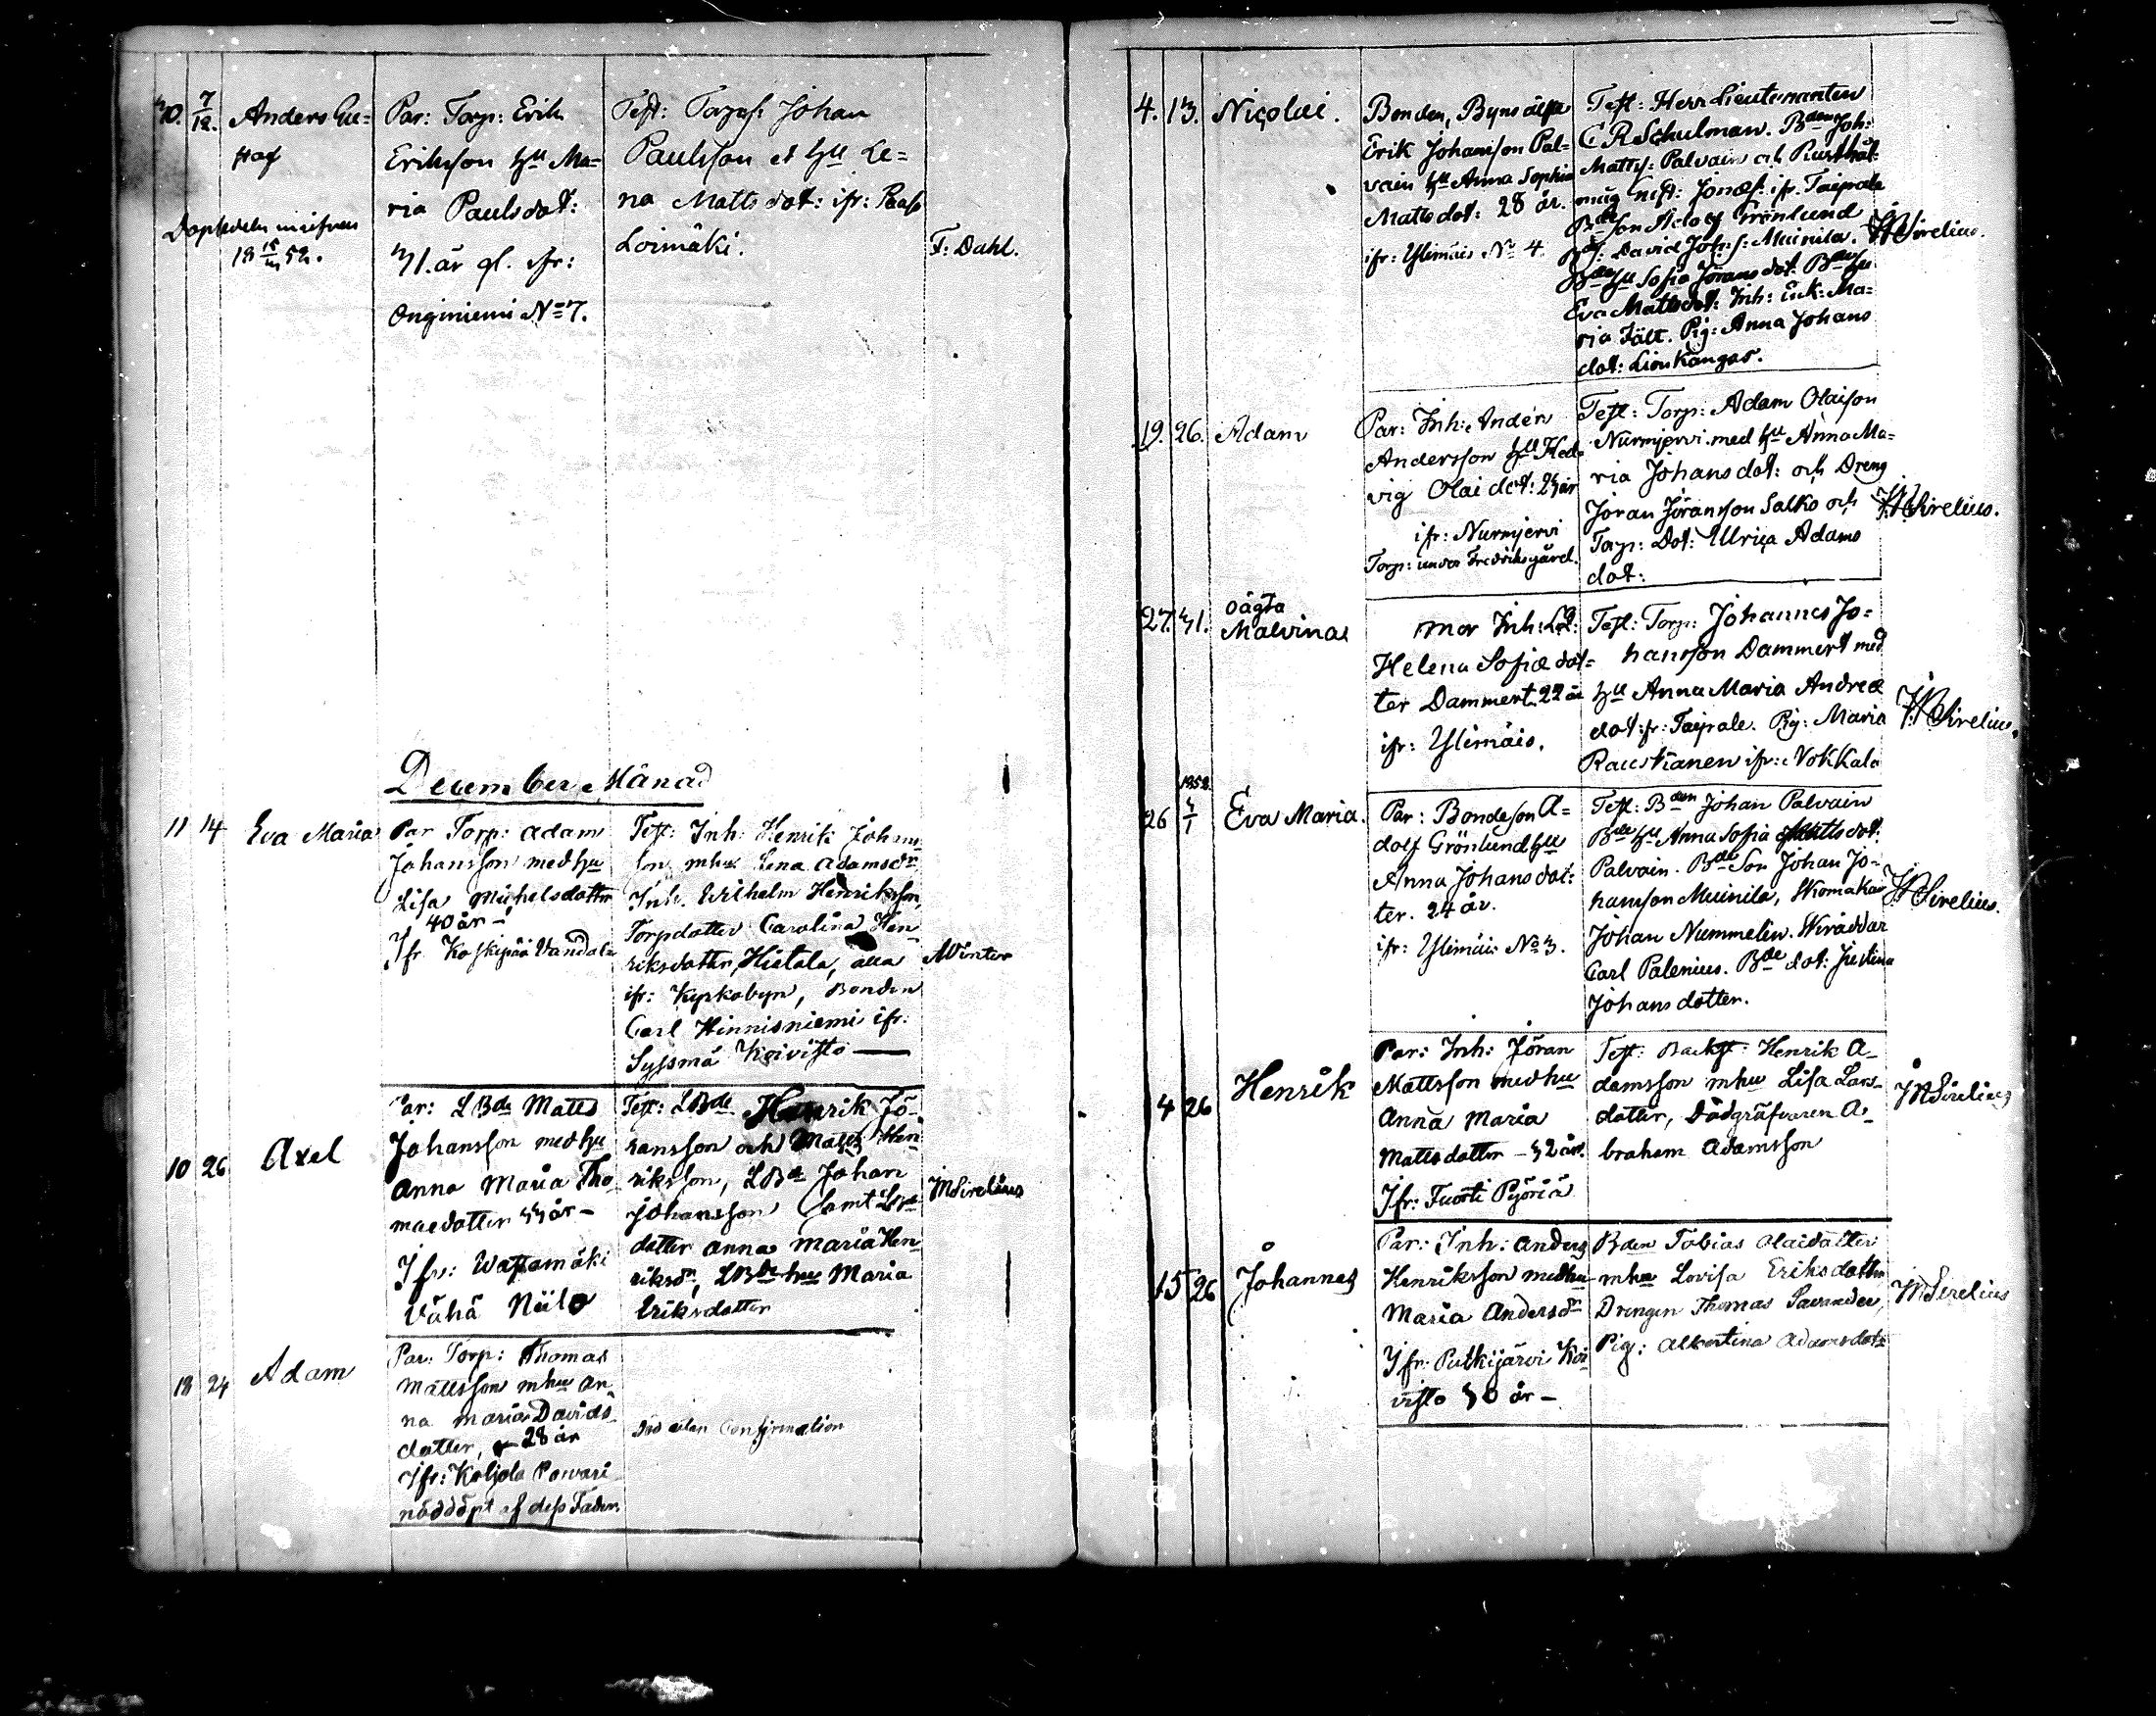 30. 7/12. Anders Gu=
staf
Par: Torp: Erik
Eriksson hu Ma=
ria Paulsdot:
31. år gl. ifr:
Onginiemi No 7.
Test: Torps: Johan
Paulsson et hu Le=
na Mattsdot: ifr: Paaso
Loimäki.
F: Dahl.
18 52.
December Månad
11 14 Eva Maria
Par Torp: Adam
Johansson med hu
Lisa Michelsdotter
40 år –
Ifr Koskipää Vandala
Test: Inh: Henrik Johans
son mhu Lena Adamsdr
Inh. Wilhelm Henriksson,
Torpdotter Carolina Hen
riksdotter, Hietala, alla
ifr: Kyrkobyn, Bonden
Carl Hinnisniemi ifr:
Syssmä Koivisto —
Winter
10 26 Axel
Par: LBde Matts
Johansson med hu
Anna Maria Tho
masdotter 33 år –
Ifr: Wassamäki
Vähä Niilo
Test: LBde Henrik Jö-
ransson och Matts Hen
riksson, LBde Johan
Johansson samt LBde
dotter Anna Maria Hen
riksdr, LBde hu Maria
Eriksdotter
JWSirelius
18 24 Adam
Par: Torp: Thomas
Mattsson mhu An
na Maria Davids
dotter, 28 år
Ifr: Koljola Porvari
nöddöpt af dess Fader.
Död utan Confirmation
4. 13. Nicolai.
Bonden, Byns älsta
Erik Johansson Pal=
vain hu Anna Sophia
Mattsdot: 28 år.
ifr: Ylimäis No 4.
Test: Herr Lieutenanten
C R Schulman. Bden Joh:
Matts: Palvain och Rusthål
Jonas: ifr. Taipale
Bde son Adolf Grönlund
David Joh: s: Muinila.
Bde hu Sofia Jöransdot. Bde hu
Eva Mattsdot: Inh: Enk: Ma=
ria Fält. Pig: Anna Johans
dot: Lionkangas.
JWSirelius.
19. 26. Adam
Par: Inh: Anders
Andersson hu Hed=
vig Olaidot: 23 år
ifr: Nurmjervi
Torp: under Fredriksgård.
Test: Torp: Adam Olaison
Nurmjervi med hu Anna Ma=
ria Johansdot: och Dreng
Jöran Jöransson Salko och
Torp: Dot: Ulrica Adams
dot:
JWSirelius.
27. 31. oägta
Malvina
mor Inh: Ld:
Helena Sofia dot=
ter Dammert. 22 år
ifr: Ylimäis.
Test: Torp: Johannes Jo=
hansson Dammert med
hu Anna Maria Andreæ
dot: fr: Taipale. Pig: Maria
Rauskianen ifr: Nokkala
JWSirelius.
1852.
26 3/1 Eva Maria.
Par: Bondeson A=
dolf Grönlund hu
Anna Johansdot=
ter. 24 år.
ifr: Ylimäis No 3.
Test: Bden Johan Palvain
Bde hu Anna Sofia Mattsdot:
Palvain. Bde Son Johan Jo-
hansson Muinila, Skomakar
Johan Nummelin. Skräddar
Carl Palenius. Bde dot: Justina
Johansdotter.
JWSirelius.
4 26 Henrik
Par: Inh: Jöran
Mattsson med hu
Anna Maria
Mattsdotter – 32 år.
Ifr: Tuorti Pyöriä
Test: Backst: Henrik A-
damsson mhu Lisa Lars-
dotter, Dödgräfvaren A-
braham Adamsson
JWSirelius
15 26 Johannes
Par: Inh: Anders
Henriksson med hu
Maria Andersdr
Ifr: Putkijärvi Koi
visto 30 år –
Bden Tobias Olaidotter
mhu Lovisa Eriksdotter
Drengen Thomas Savander,
Pig: Albertina Adamsdotr
JWSirelius